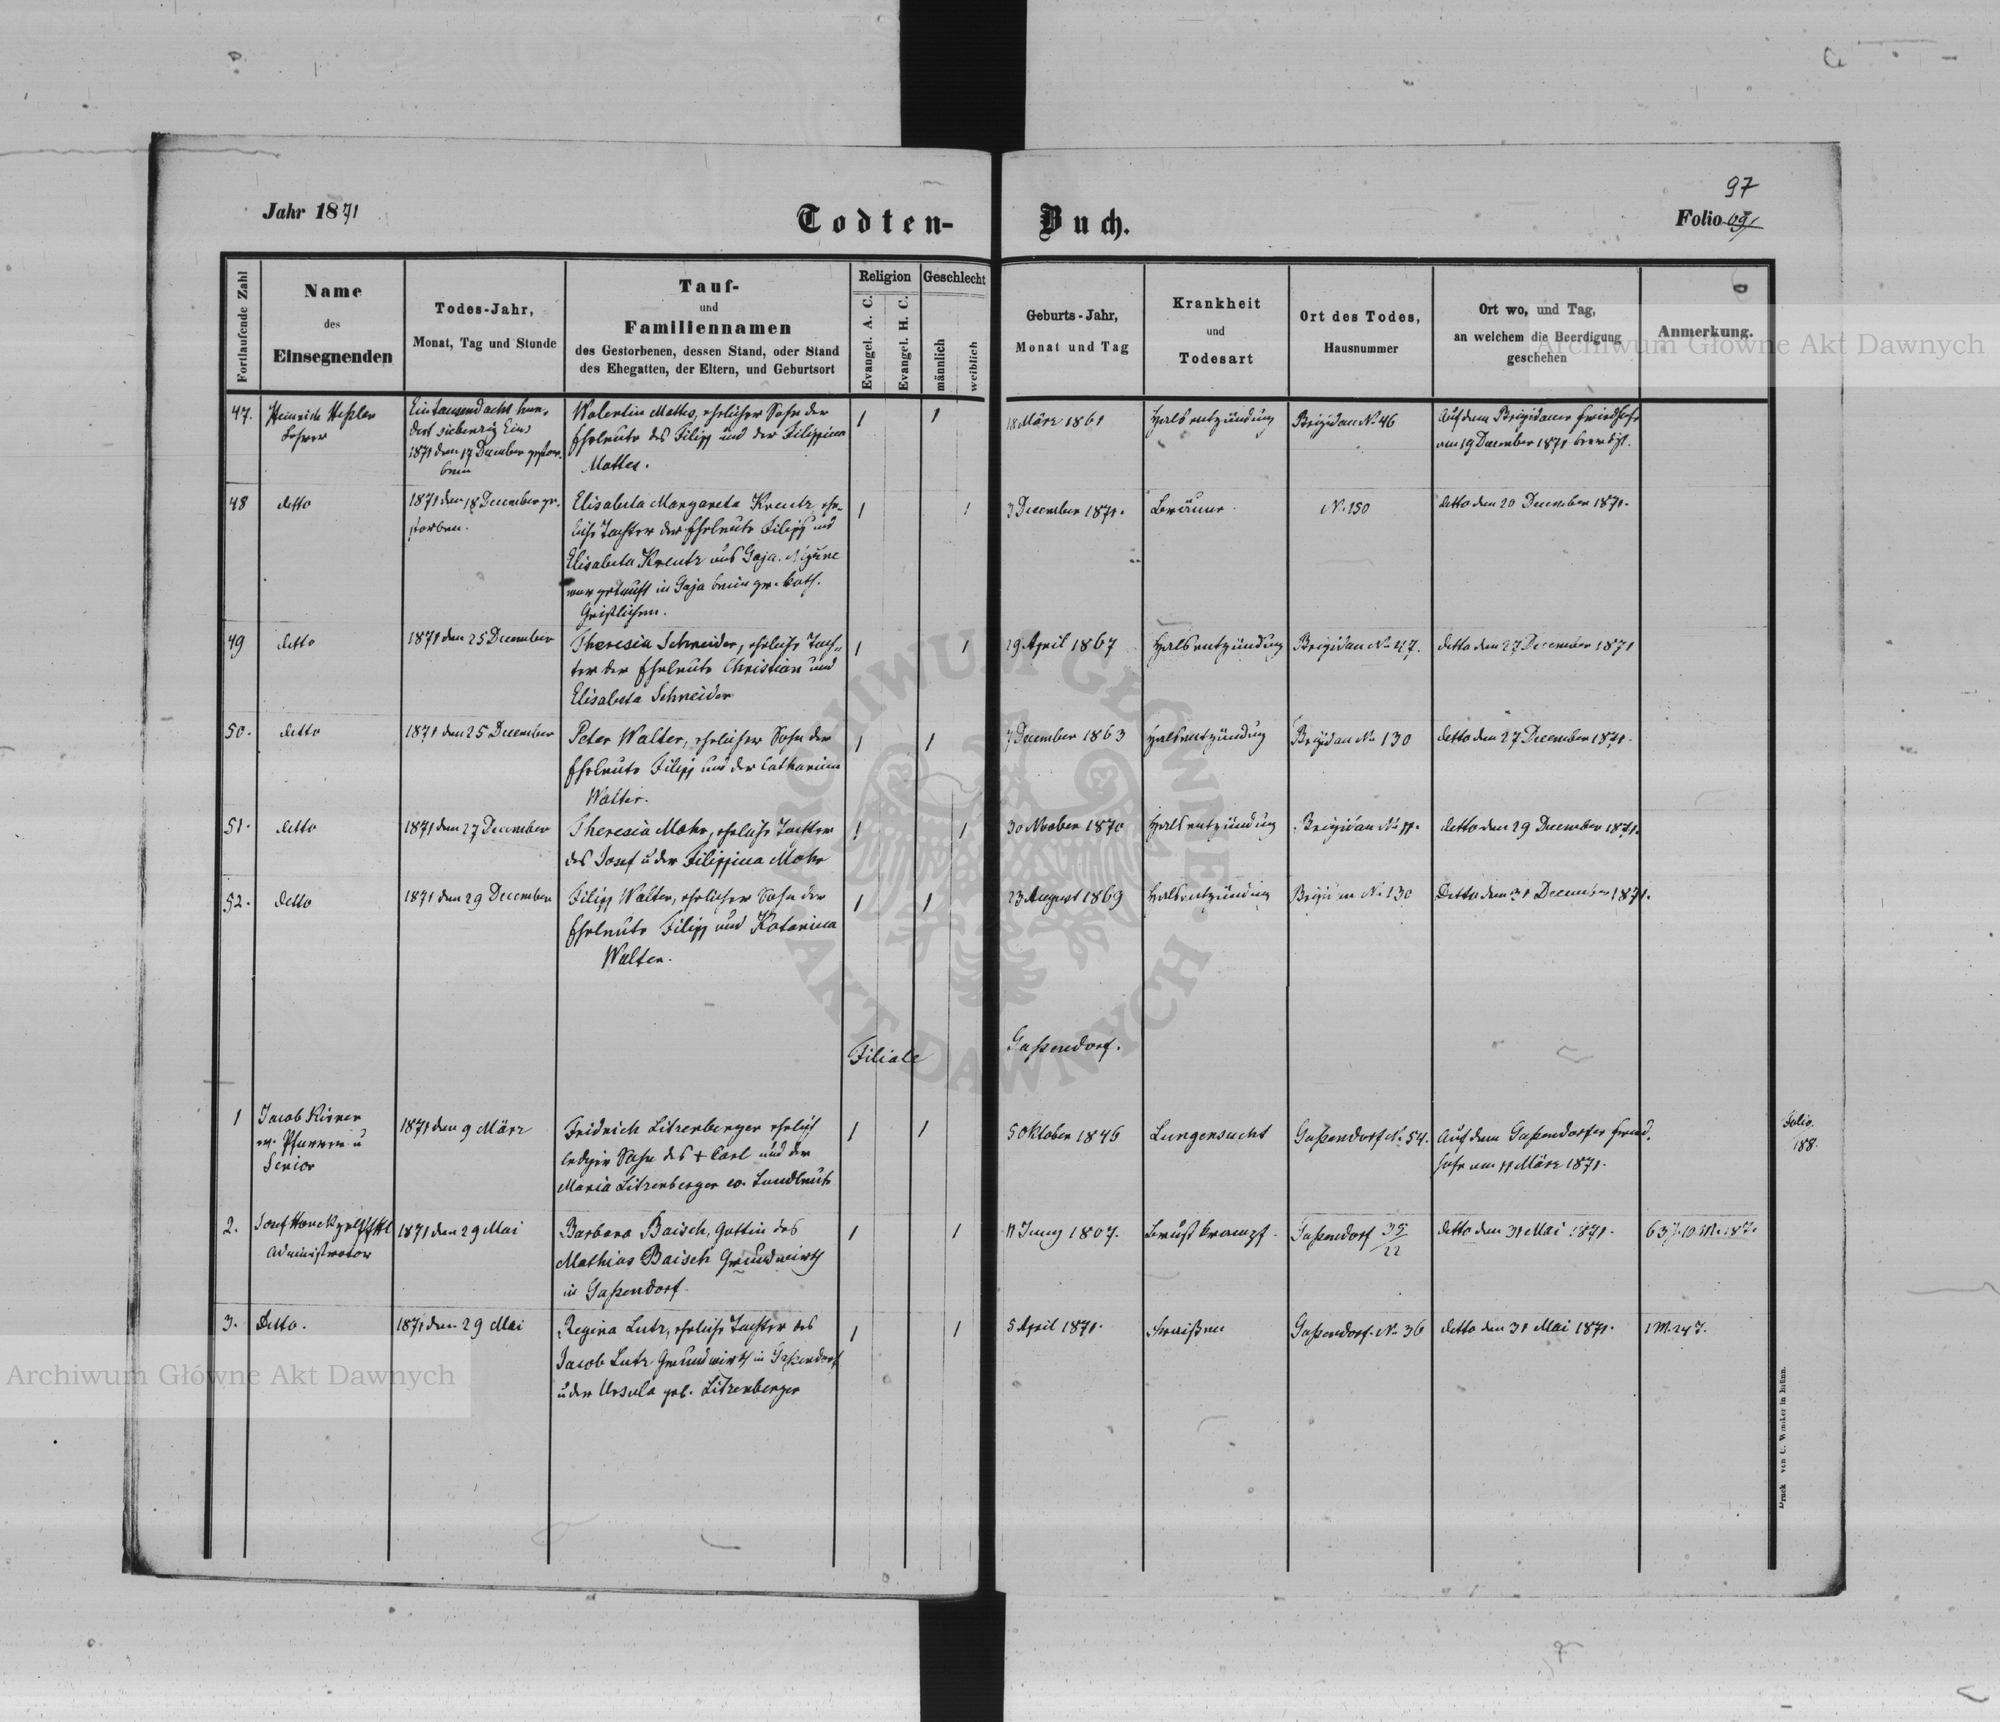 97
Jahr 1871
Todten-
Buch.
Folio 69
Fortlaufende Zahl
Name
des
Einsegnenden
Todes-Jahr,
Monat, Tag und Stunde
Tauf-
und
Familiennamen
des Gestorbenen, dessen Stand, oder Stand
des Ehegatten, der Eltern, und Geburtsort
Religion
Evangel. A. C.
Evangel. H. C.
Geschlecht
männlich
weiblich
Geburts-Jahr,
Monat und Tag
Krankheit
und
Todesart
Ort des Todes,
Hausnummer
Ort wo, und Tag,
an welchem die Beerdigung
geschehen
Anmerkung.
47.
Heinrich Heßler
Lehrer
Eintausend acht hun-
dert siebenzig Eins
1871 den 17 December gestor-
ben
Valentin Mattes, ehelicher Sohn der
Eheleute des Filipp und der Filippina
Mattes.
1
1
18 März 1861
Halsentzündung
Brigidau No 46
Auf dem Brigidauer Friedhofe
am 19 December 1871 beerdigt.
48
detto
1871 den 18 December ge-
storben.
Elisabeta Margareta Kreutz, ehe-
liche Tochter der Eheleute Filipp und
Elisabeta Kreutz aus Gaja.
war getauft in Gaja beim gr. kath.
Geistlichen.
1
1
3 December 1871.
Bräune.
No 150
detto den 20 December 1871.
49
detto
1871 den 25 December
Theresia Schneider, eheliche Toch-
ter der Eheleute Christian und
Elisabeta Schneider
1
1
29 April 1867
Halsentzündung
Brigidau No 47.
detto den 27 December 1871
50.
detto
1871 den 25 December
Peter Walter, ehelicher Sohn der
Eheleute Filipp und der Catharina
Walter.
1
1
7 December 1863
Halsentzündung
Brigidau No 130
detto den 27 December 1871.
51.
detto
1871 den 27 December
Theresia Mohr, eheliche Tochter
des Josef u der Filippina Mohr
1
1
30 November 1870
Halsentzündung
Brigidau No 11.
detto den 29 December 1871.
52.
detto
1871 den 29 December
Filipp Walter, ehelicher Sohn der
Eheleute Filipp und Katarina
Walter.
1
1
23 August 1869
Halsentzündung
Brigidau No 130
Detto den 31 December 1871.
Filiale
Gaßendorf.
1
Jacob Kirner
ev. Pfarrer u
Senior
1871 den 9 März
Fridrich Litzenberger ehelich
lediger Sohn des + Carl und der
Maria Litzenberger ev. Landleute
1
1
5 Oktober 1846
Lungensucht
Gaßendorf No 54.
Auf dem Gaßendorfer Fried-
hofe am 11 März 1871.
Folio
188.
2.
Administrator
1871 den 29 Mai
Barbara Baisch, Gattin des
Mathias Baisch Grundwirth
in Gaßendorf.
1
1
11 Juny 1807.
Brustkrampf.
Gaßendorf 35/22
detto den 31 Mai 1871.
63 J. 10 M. 18 T.
3.
Detto.
1871 den 29 Mai
Regina Lutz, eheliche Tochter des
Jacob Lutz Grundwirth in Gaßendorf
u der Ursula geb. Litzenberger
1
1
5 April 1871.
Fraißen
Gaßendorf. No 36
detto den 31 Mai 1871.
1 M. 24 T.
Druck von C. Winiker in Brünn.
Archiwum Główne Akt Dawnych
Archiwum Główne Akt Dawnych
ARCHIWUM GŁÓWNE AKT DAWNYCH